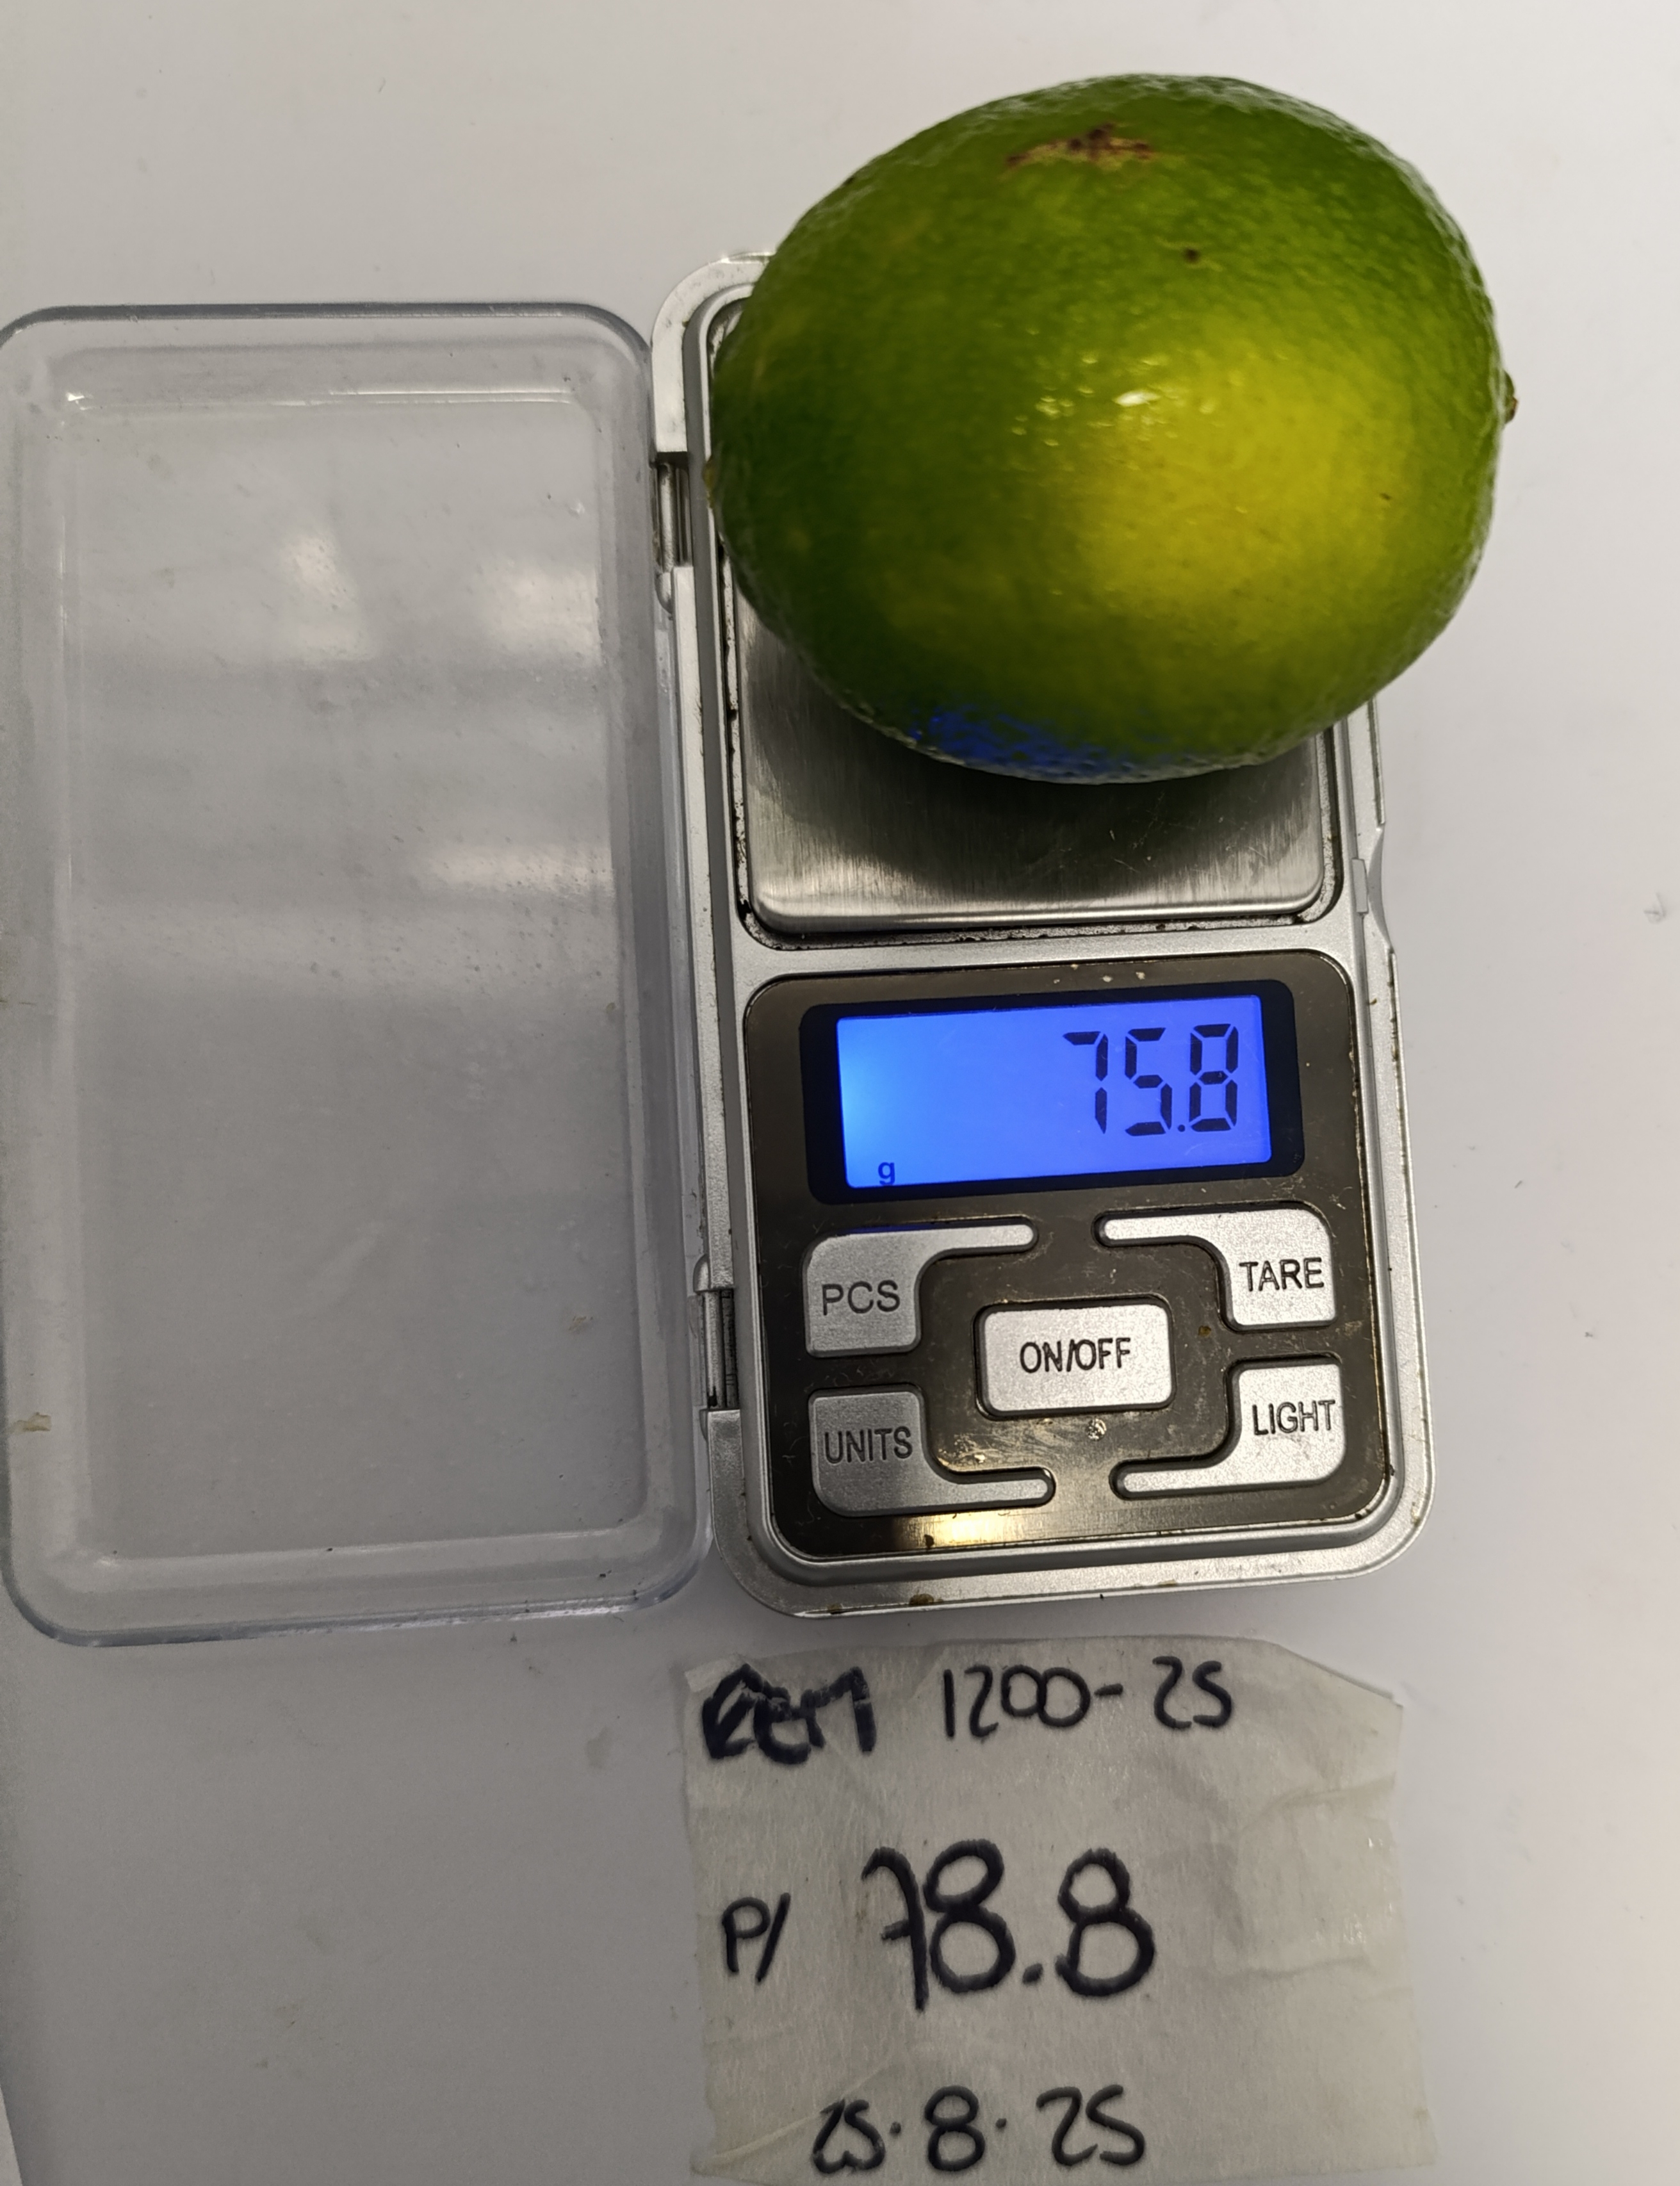 75.8
g
PCS
TARE
ON/OFF
UNITS
LIGHT
1200-25
P/ 78.8
25.8.25